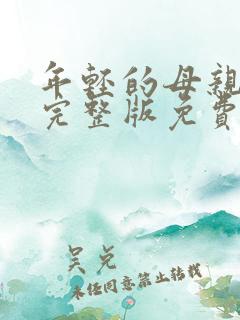 年轻的母親
完整版免費
吴兑
未经同意禁止转载